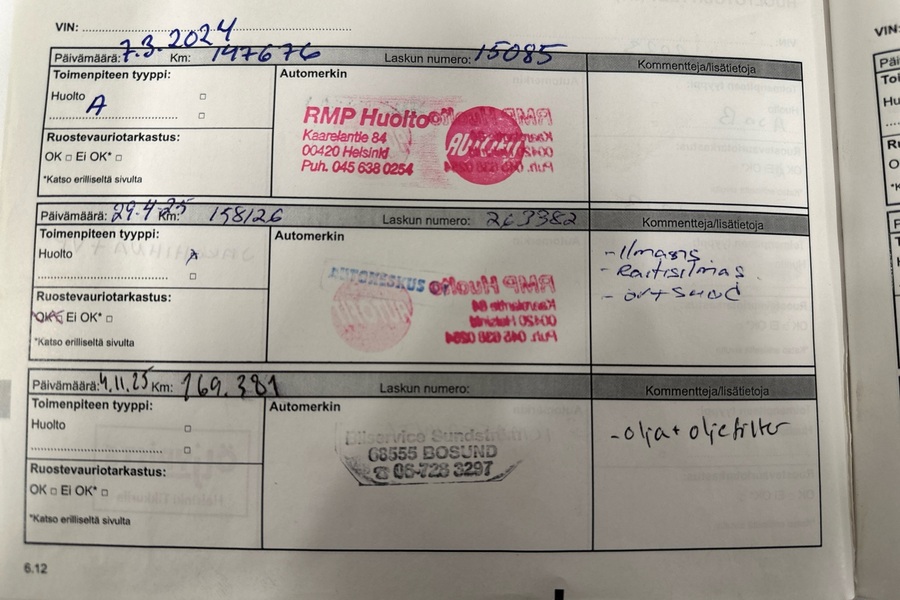 VIN:
Päivämäärä: 7.3.2024 Km: 147676 Laskun numero: 15085 Kommentteja/lisätietoja
Toimenpiteen tyyppi:
Huolto A
Ruostevauriotarkastus:
OK □ Ei OK* □
*Katso erilliseltä sivulta
Automerkin
RMP Huolto
Kaarelantie 84
00420 Helsinki
Puh. 045 638 0254
AUTOFIT
Päivämäärä: 29.4.25 Km: 158126 Laskun numero: 263382 Kommentteja/lisätietoja
Toimenpiteen tyyppi:
Huolto
Ruostevauriotarkastus:
OK □ Ei OK* □
*Katso erilliseltä sivulta
Automerkin
AUTOKESKUS
RMP Huolto
Kaarelantie 84
00420 Helsinki
Puh. 045 638 0254
- Raitisilmas
Päivämäärä: 4.11.25 Km: 169.381 Laskun numero: Kommentteja/lisätietoja
Toimenpiteen tyyppi:
Huolto
Ruostevauriotarkastus:
OK □ Ei OK* □
*Katso erilliseltä sivulta
Automerkin
Bilservice Sundström
68555 BOSUND
☎ 06-728 3297
- olja + oljefilter
6.12
VIN: